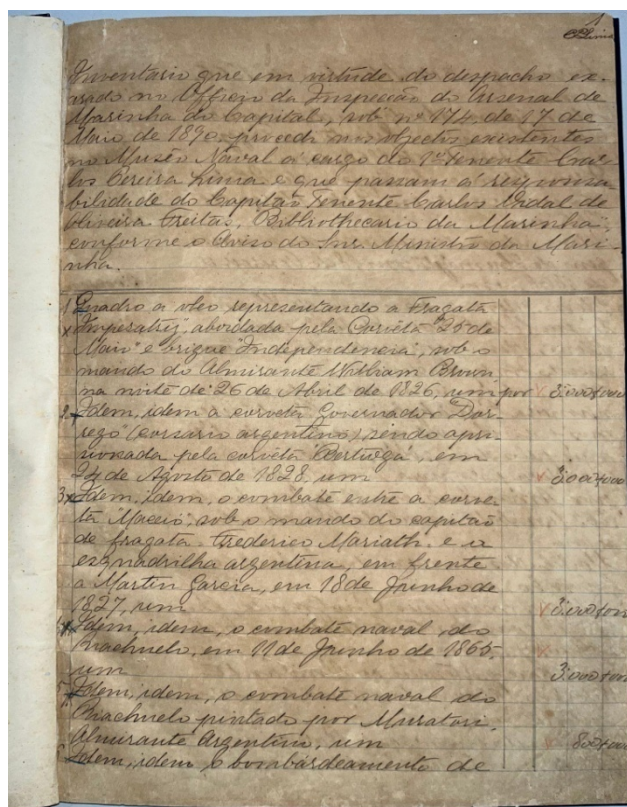 1
Inventario que em virtude do despacho ex-
arado no Officio da Inspecção do Arsenal de
Marinha da Capital, sob nº 174 de 17 de
Maio de 1890 procedi nos objectos existentes
no Museo Naval a cargo do 1º Tenente Car-
los Pereira Lima e que passam á responsa
bilidade do Capitão Tenente Carlos Vidal de
Oliveira Freitas, Bibliothecario da Marinha,
conforme o Aviso do Snr. Ministro da Mari-
nha.
1 Quadro a oleo representando a Fragata
x "Imperatriz", abordada pela Corveta "25 de
Maio" e brigue "Independencia", sob o
mando do Almirante William Brown
na noite de 26 de Abril de 1826, um por 3:000$000
2 x Idem, idem a corveta "Governador Dor-
rego" (corsario argentino) sendo apri-
sionada pela corveta "Bertioga", em
24 de Agosto de 1828, um 3:000$000
3 x Idem, idem, o combate entre a corve-
ta "Maceió", sob o mando do capitão
de fragata Frederico Mariath e a
esquadrilha argentina, em frente
a Martin Garcia, em 18 de Junho de
1827, um 3:000$000
4 x Idem, idem, o combate naval do
Riachuelo, em 11 de Junho de 1865,
um 3:000$000
5 Idem, idem, o combate naval do
Riachuelo pintado por Muratori,
Almirante Argentino, um 800$000
6 Idem, idem, o bombardeamento de